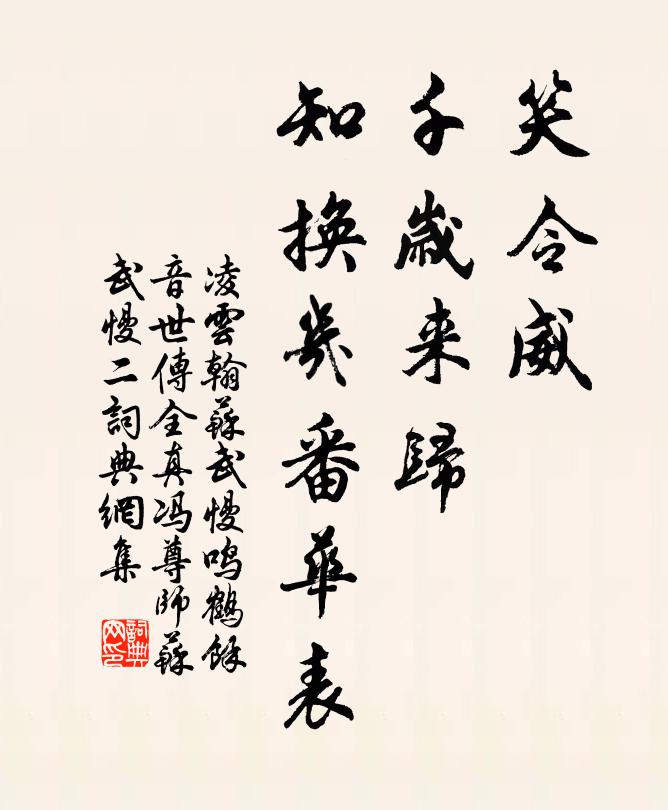 笑令威
千歲来歸
知換幾番華表
凌雲翰蘇武慢鳴鶴餘
音世傳全真馮尊師蘇
武慢二詞典網集
詞典
网印